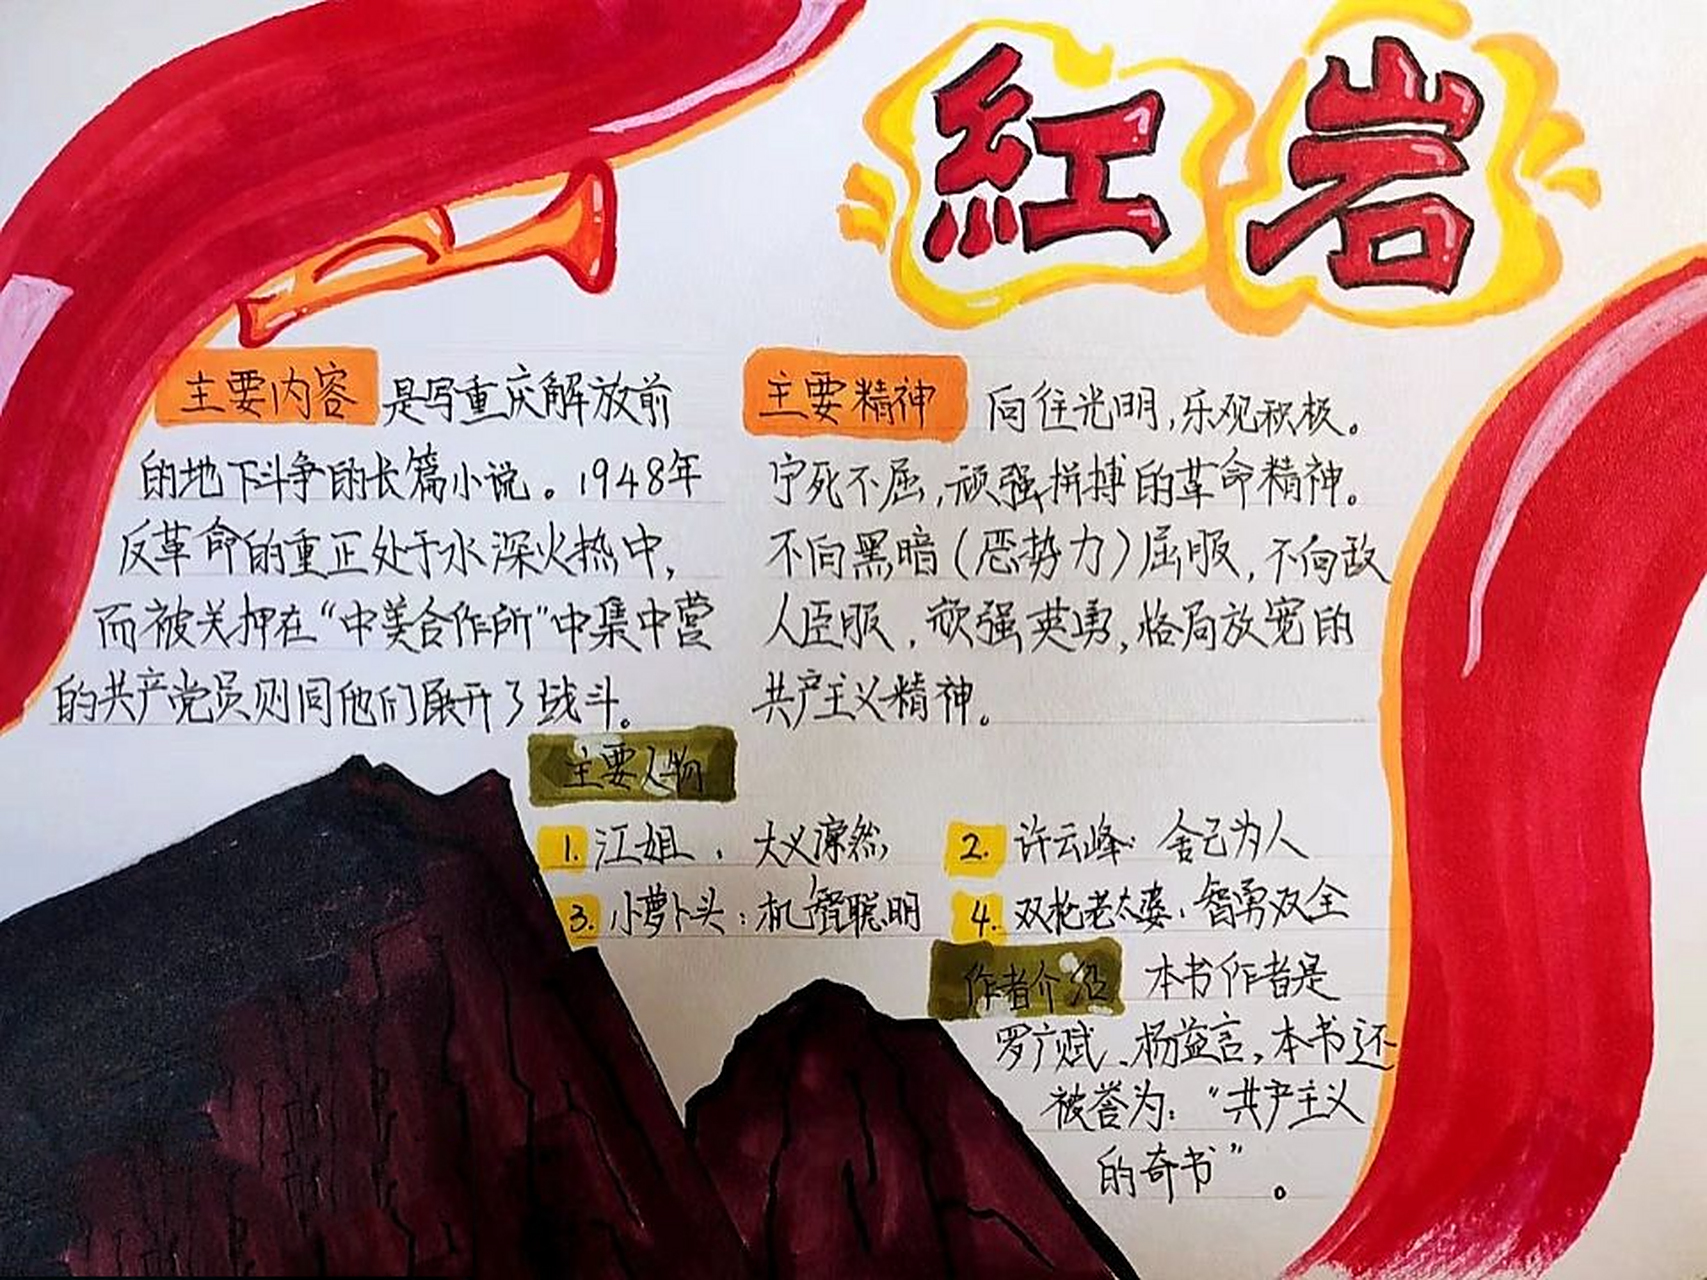 紅岩
主要内容 是写重庆解放前
的地下斗争的长篇小说。1948年
反革命的重正处于水深火热中,
而被关押在“中美合作所”中集中营
的共产党员则同他们展开了战斗。
主要精神 向往光明,乐观积极。
宁死不屈,顽强拼搏的革命精神。
不向黑暗(恶势力)屈服,不向敌
人臣服,顽强英勇,格局放宽的
共产主义精神。
主要人物
1. 江姐: 大义凛然;
2. 许云峰: 舍己为人
3. 小萝卜头:机智聪明
4. 双枪老太婆:智勇双全
作者介绍 本书作者是
罗广斌、杨益言,本书还
被誉为:“共产主义
的奇书”。